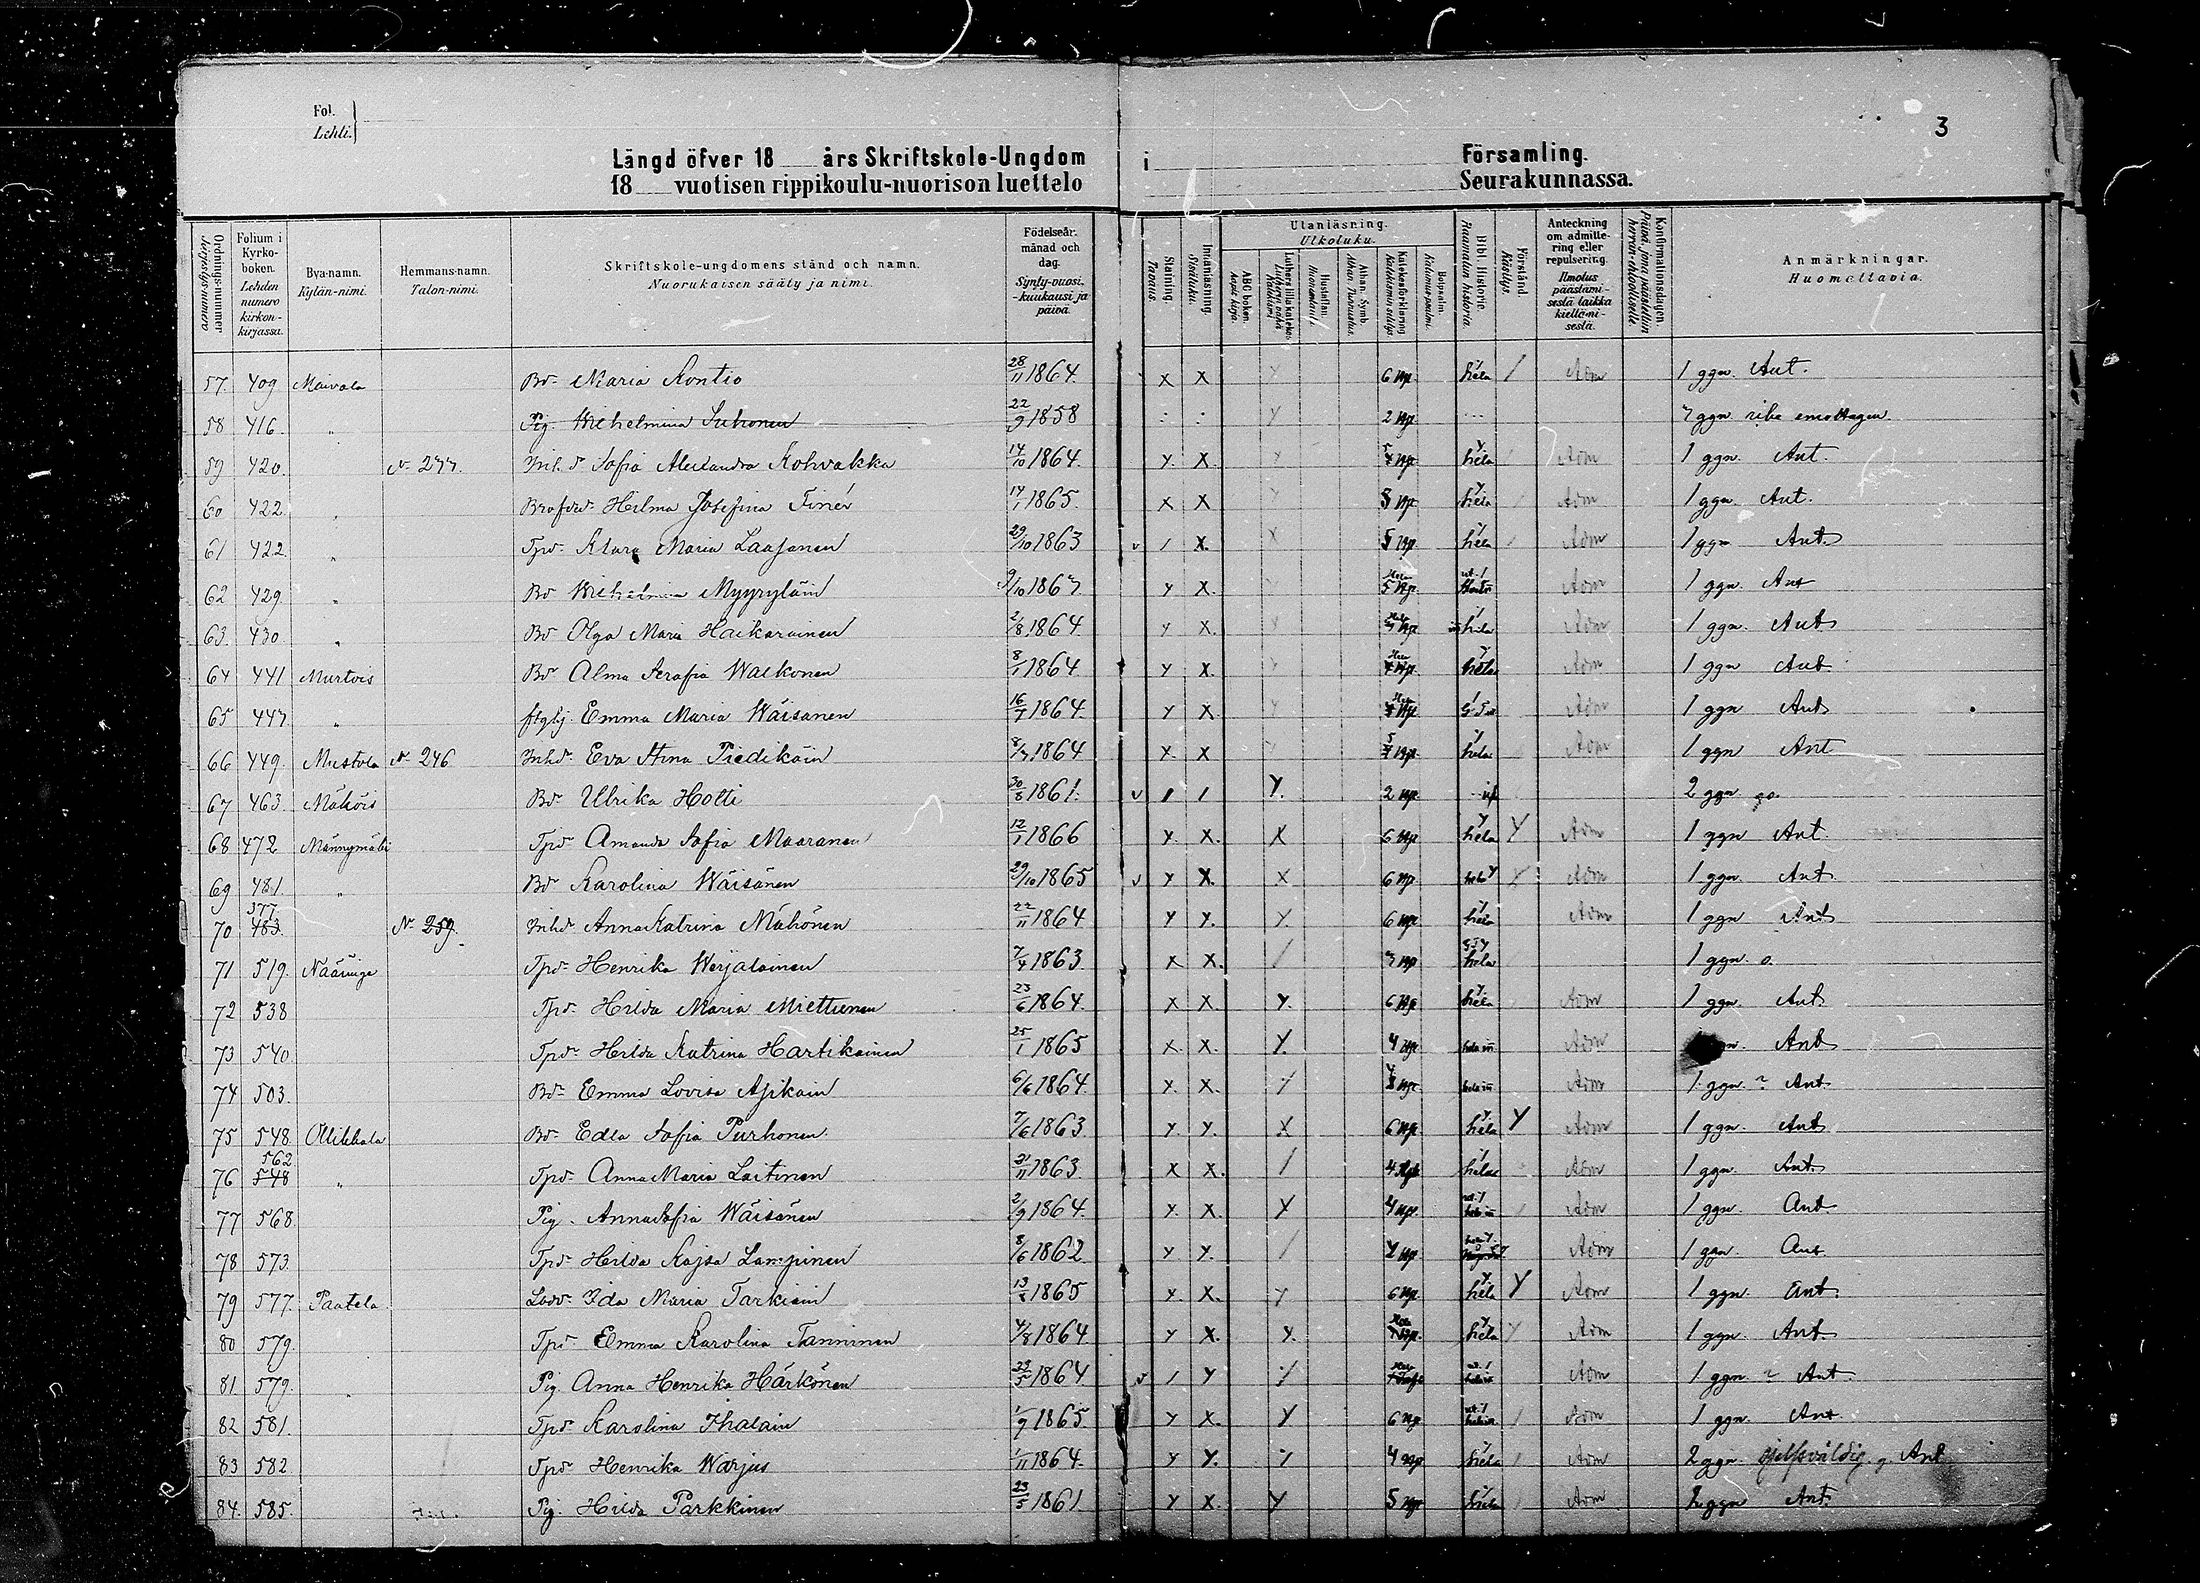 Fol.
Lehti.
3
Längd öfver 18 års Skriftskole-Ungdom i Församling.
18 vuotisen rippikoulu-nuorison luettelo Seurakunnassa.
Ordnings-nummer Järjestys-numero
Folium i Kyrko-boken. Lehden numero kirkon-kirjassa.
Bya-namn. Kylän-nimi.
Hemmans-namn. Talon-nimi.
Skriftskole-ungdomens stånd och namn. Nuorukaisen sääty ja nimi.
Födelseår, månad och dag. Synty-vuosi, -kuukausi ja päivä.
Stafning. Tavaus.
Innanläsning. Sisäluku.
Utanläsning. Ulkoluku.
ABC boken. Aapis kirja.
Luthers lilla katekes.
Hustaflan. Huoneentaulu.
Athan. Symb. Athan. Tunnustus.
Katekesförklaring
Botpsalm. Katumus-psalmi.
Bibl. Historie. Raamatun historia.
Förstånd. Käsitys.
Anteckning om admitte-ring eller repulsering. Ilmoitus päästämi-sestä taikka kieltämi-sestä.
Konfirmationsdagen. Päivä, jona päästettiin herran-ehtoolliselle.
Anmärkningar. Huomettavia.
57. 409 Maivala Bd. Maria Kontio 28/11 1864. X X 6 Kp. hela / Adm 1 ggn. Ant.
58 416. " Pig. Wilhelmina Suhonen 22/9 1858 2 Kp. ggn
59 420. " N 277. Inh. d Sofia Alexandra Kohvakka 14/10 1864. Y. X. hela Adm 1 ggn. Ant.
60 422. " Hilma Josefina 14/1 1865. X X 8 Kp. hela Adm 1 ggn Ant.
61 422. " Tpd. Klara Maria Laasonen 29/10 1863 v / X. 5 Kp. hela Adm 1 ggn Ant.
62 429. " Bd Wilhelmina Myyryläin Y X. 5 Kp. Adm 1 ggn. Ant
63. 430. " Bd Olga Maria Haikarainen 2/8 1864. Y X. hela Adm 1 ggn. Ant
64 441 Murtois Bd Alma Serafia Walkonen 8/1 1864. Y X. hela Adm 1 ggn Ant.
65 447. " Emma Maria Wäisänen 16/7 1864. Y X. Adm 1 ggn Ant
66 449. Mustola N 246 Inhd. Eva Stina Piedikäin 1864 X. X. hela Adm 1 ggn Ant
67 463. Mähöis Bd Ulrika Hotti 30/8 1861. v / / Y. 2 Kp. 2 ggn
68 472 Männymäki Tpd Amanda Sofia Maaranen 12/1 1866 Y. X. X 6 Kp. hela Y Adm 1 ggn Ant
69 481. " Bd Karolina Wäisänen 29/10 1865 v Y X. X 6 Kp. hela Adm 1 ggn. Ant
70 377. 483. N 259. Inhd Anna Katrina Mähönen 22/11 1864 Y Y. Y. 6 Kp. hela Adm 1 ggn Ant
71 519. Tpd. Henrika Werjalainen 7/4 1863. X X. / hela 1 ggn o.
72 538 Tpd. Hilda Maria Miettienen 23/6 1864. X X. Y. 6 Kp. hela Adm 1 ggn. Ant.
73 540. Tpd. Hilda Katrina Hartikainen 25/1 1865 X X. Y. 4 Kp. Adm Ant
74 503. Bd. Emma Lovisa Asikain 6/6 1864. X. X. Adm 1. ggn ? Ant.
75 548. Ollikkala Bd. Edla Sofia Purhonen. 7/6 1863. Y Y. X 6 Kp. hela Y Adm 1 ggn. Ant
76 562 548 " Tpd. Anna Maria Laitinen 1863. X X. / 4 Kp. hela Adm 1 ggn. Ant.
77 568. Pig. Anna Sofia Wäisänen 2/9 1864. Y. X. Y 4 Kp. Adm 1 ggn. Ant.
78 573. Tpd. Hilda Kajsa Lampinen 8/6 1862. Y Y. / Kp. Adm 1 ggn. Ant
79 577. Paatela Ida Maria Tarkiain 1865 Y. X. Y 6 Kp. hela Y Adm 1 ggn. Ant.
80 579. Tpd Emma Karolina Tanninen 4/8 1864. Y X. Y. hela Y Adm 1 ggn. Ant.
81. 579. " Pig. Anna Henrika Härkönen 23/5 1864 v / Y Adm 1 ggn ? Ant.
82 581. Tpd Karolina Ihalain 1/9 1865 Y X. Y 6 Kp. / Adm 1 ggn. Ant.
83 582 Tpd Henrika Warjus 1/11 1864. Y Y. 4 Kp hela / Adm 2 ggn. sjelfsvåldig. Ant
84. 585. Pig. Hilda Parkkinen 23/5 1861 Y X. Y 5 Kp hela Adm ggn Ant.